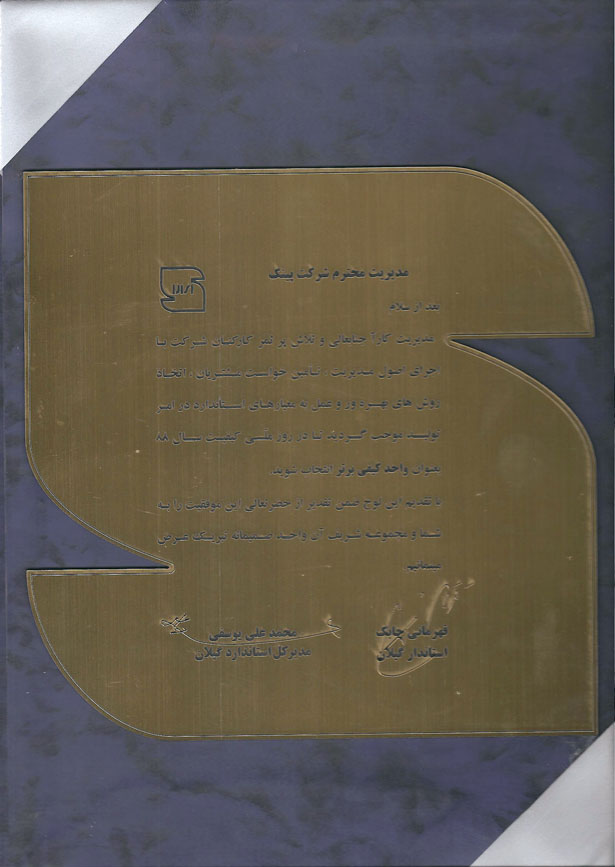 مدیریت محترم شرکت پیسک
بعد از سلام
مدیریت کارآ جنابعالی و تلاش پر ثمر کارکنان شرکت با
اجرای اصول مدیریت ، تأمین خواست مشتریان ، اتخاذ
روش های بهره ور و عمل به معیارهای استاندارد در امر
تولید موجب گردید تا در روز ملی کیفیت سال ۸۸
بعنوان واحد کیفی برتر انتخاب شوید.
با تقدیم این لوح ضمن تقدیر از حضرتعالی این موفقیت را به
شما و مجموعه شریف آن واحد صمیمانه تبریک عرض
مینمایم
قهرمانی چابک
استاندار گیلان
محمد علی یوسفی
مدیرکل استاندارد گیلان